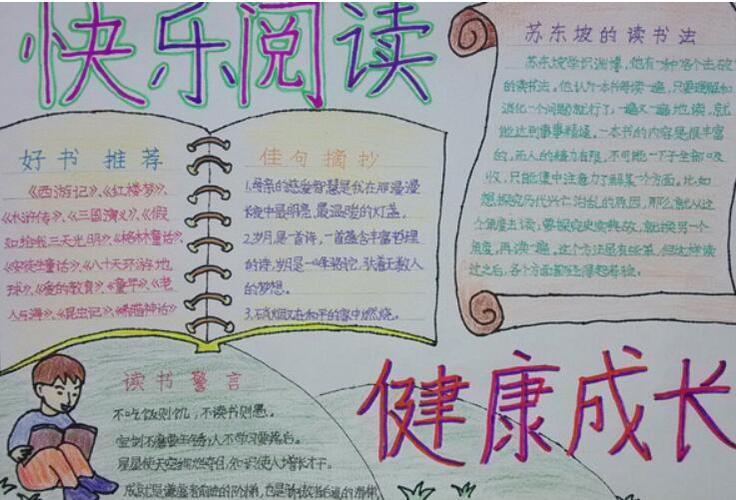 快乐阅读
好书推荐
《西游记》、《红楼梦》、
《水浒传》、《三国演义》、《假
如给我三天光明》、《格林童话》、
《安徒生童话》、《八十天环游地
球》、《爱的教育》、《童年》、《老
人与海》、《昆虫记》、《希腊神话》
佳句摘抄
1.母亲的慈爱智慧是我在那漫漫
长夜中最明亮、最温暖的灯盏。
2.岁月是一首诗,一首蕴含丰富哲理
的诗,岁月是一峰骆驼,驮着无数人
的梦想。
3.硝烟又在和平的家中燃烧。
苏东坡的读书法
苏东坡学识渊博,他有一种"各个击破"
的读书法。他认为一本书每读一遍,只要理解和
消化一个问题就行了,一遍又一遍地读,就
能达到事事精通。一本书的内容是很丰富
的,而人的精力有限,不可能一下子全部吸
收,只能集中注意力了解某一个方面。比如
想探究历代兴亡治乱的原因,那么就从这
个角度去读;要探究史实典故,就换另一个
角度,再读一遍。这个方法虽有些笨,但这样读
过之后,各个方面都经得起考验。
读书警言
不吃饭则饥,不读书则愚。
宝剑不磨要生锈,人不学习要落后。
星星使天空绚烂夺目,知识使人增长才干。
健康成长